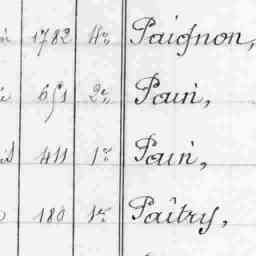 1782 4º Paignon,
651 2º Pain,
411 1º Pain,
180 1º Paîtry,